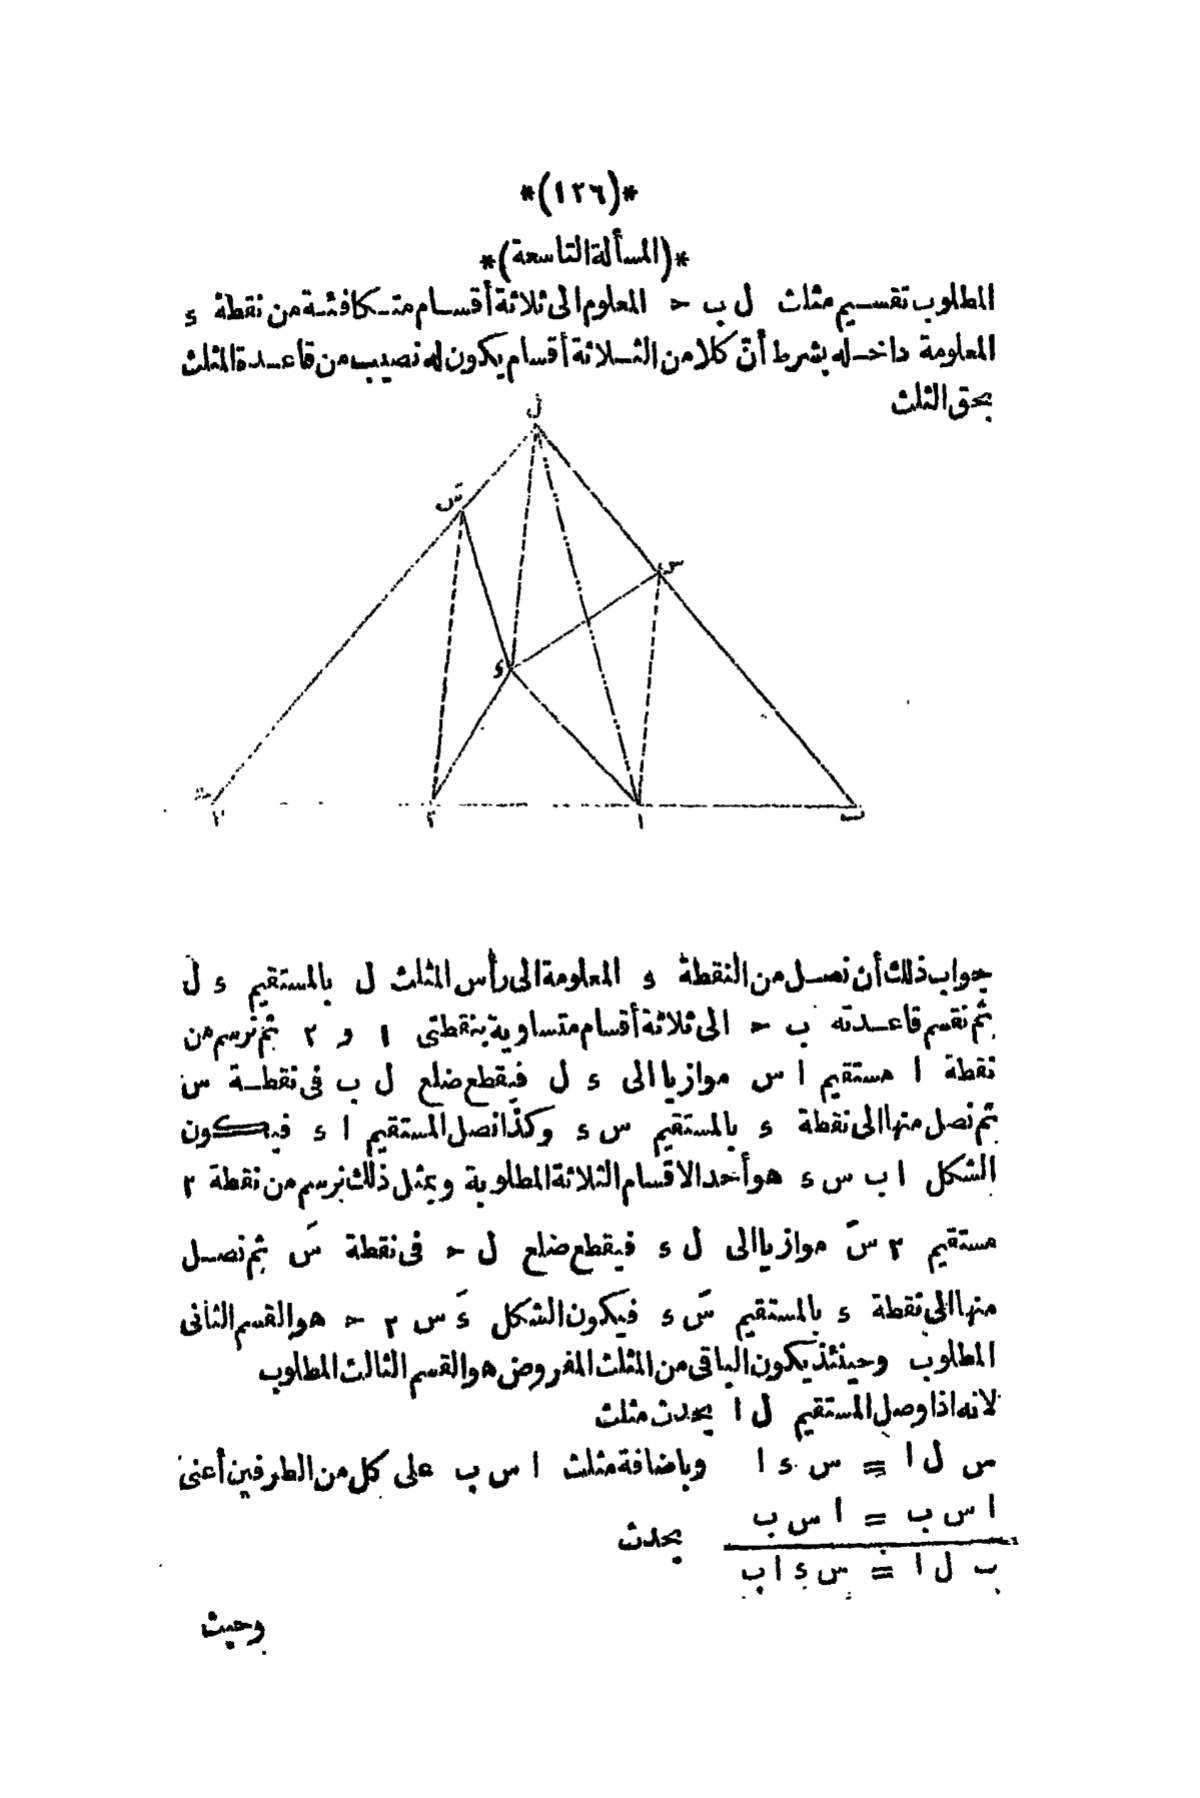 *(١٢٦)*
*(المسألة التاسعة)*
المطلوب تقسيم مثلث ل ب ح المعلوم الى ثلاثة أقسام متكافئة من نقطة ء
المعلومة داخله بشرط أنّ كلا من الثلاثة أقسام يكون له نصيب من قاعدة المثلث
بحق الثلث
ل
سَ
س
ء
ح
٣
٢
١
ب
جواب ذلك أن نصل من النقطة ء المعلومة الى رأس المثلث ل بالمستقيم ء ل
ثم نقسم قاعدته ب ح الى ثلاثة أقسام متساوية بنقطتى ١ و ٢ ثم نرسم من
نقطة ١ مستقيم ١ س موازيا الى ء ل فيقطع ضلع ل ب فى نقطة س
ثم نصل منها الى نقطة ء بالمستقيم س ء وكذا نصل المستقيم ١ ء فيكون
الشكل ١ ب س ء هو أحد الاقسام الثلاثة المطلوبة وبمثل ذلك نرسم من نقطة ٢
مستقيم ٢ سَ موازيا الى ل ء فيقطع ضلع ل ح فى نقطة سَ ثم نصل
منها الى نقطة ء بالمستقيم سَ ء فيكون الشكل ءَ س ٢ ح هو القسم الثانى
المطلوب وحينئذ يكون الباقى من المثلث المفروض هو القسم الثالث المطلوب
لانه اذا وصل المستقيم ل ١ يحدث مثلث
س ل ١ = س ء ١ وباضافة مثلث ١ س ب على كل من الطرفين أعنى
١ س ب = ١ س ب
يحدث
ب ل ١ = س ء ١ ب
وحيث